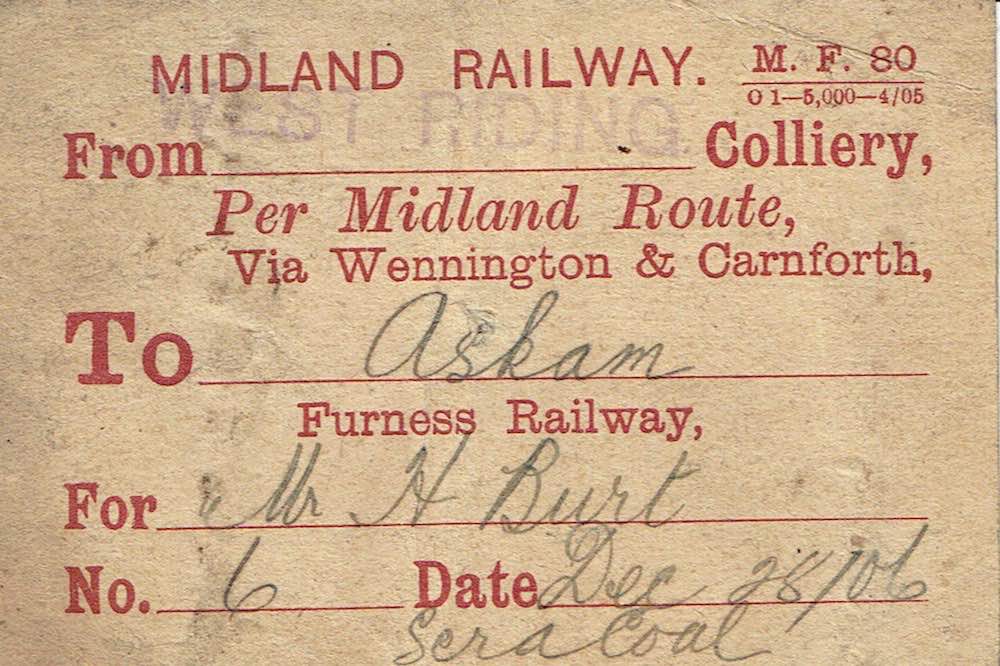 MIDLAND RAILWAY. M. F. 80
O 1—5,000—4/05
WEST RIDING
From Colliery,
Per Midland Route,
Via Wennington & Carnforth,
To Askam
Furness Railway,
For Mr H Burt
No. 6 Date Dec 28/06
Coal